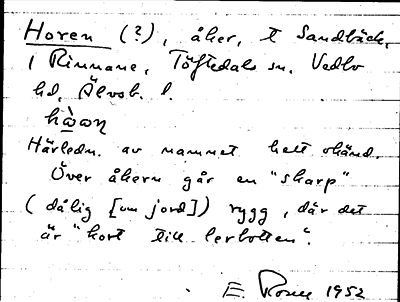 Horen (?), åker, t Sandbäck,
1 Rinnane, Töftedals sn, Vedbo
hd, Älvsb. l.
Härledn. av namnet helt okänd.
Över åkern går en "skarp"
(dålig [om jord]) rygg, där det
är "kort till lerbotten".
E. 1952